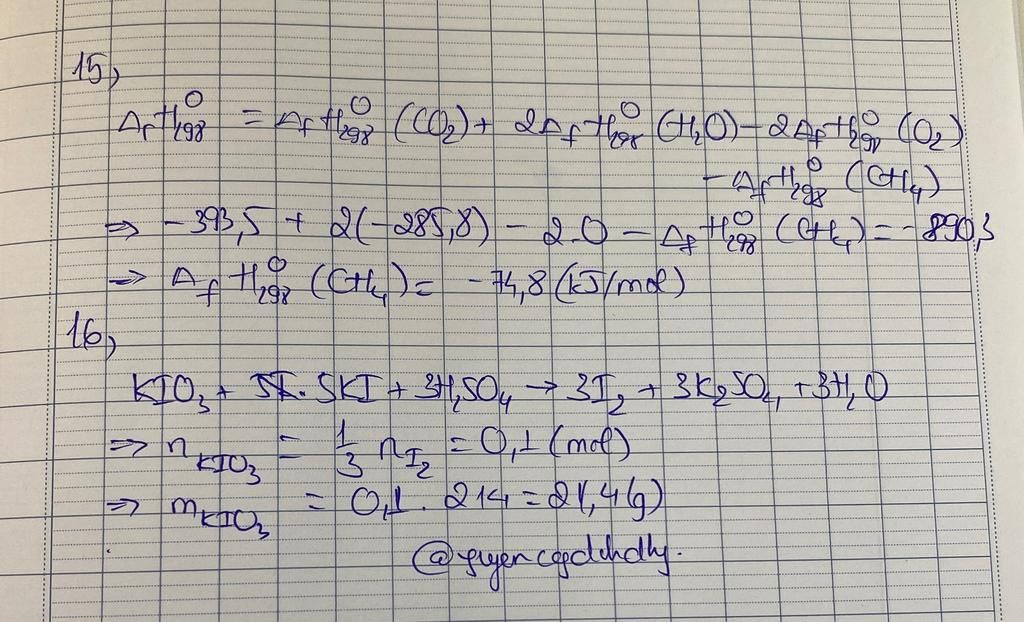 15,
ΔfH⁰298 = ΔfH⁰298 (CO2) + 2ΔfH⁰298 (H2O) - 2ΔfH⁰298 (O2)
- ΔfH⁰298 (CH4)
=> -393,5 + 2(-285,8) - 2.0 - ΔfH⁰298 (CH4) = -890,3
=> ΔfH⁰298 (CH4) = -74,8 (kJ/mol)
16,
KIO3 + 5KI + 3H2SO4 → 3I2 + 3K2SO4 + 3H2O
=> nKIO3 = 1/3 nI2 = 0,1 (mol)
=> mKIO3 = 0,1 . 214 = 21,4 (g)